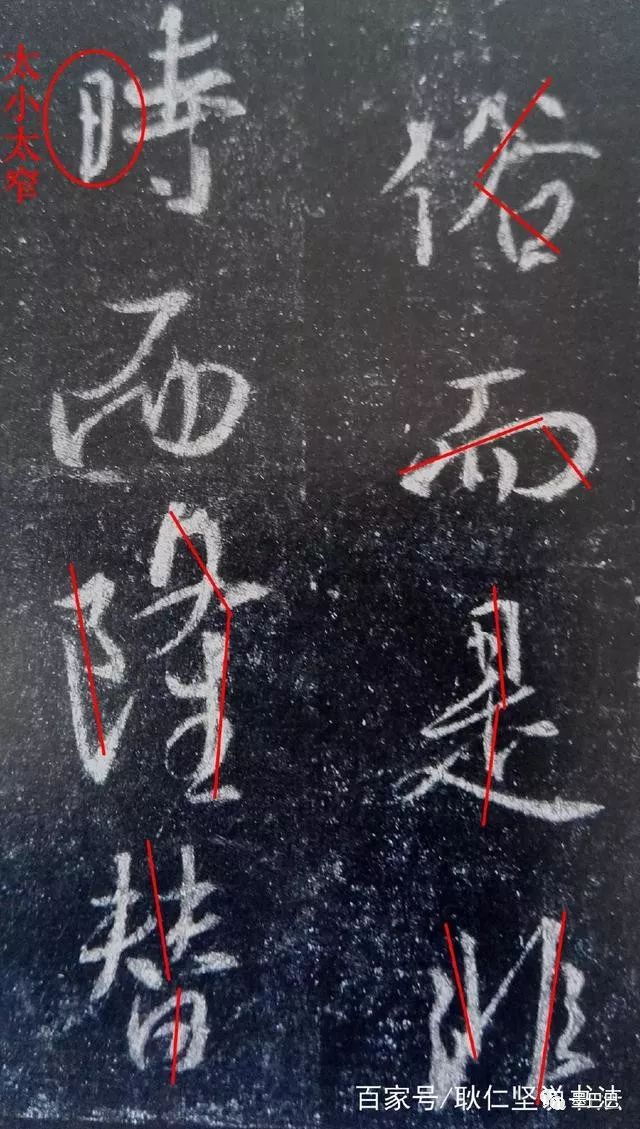 俗而是非
時而隆替
太小太窄
百家号/耿仁坚说书法